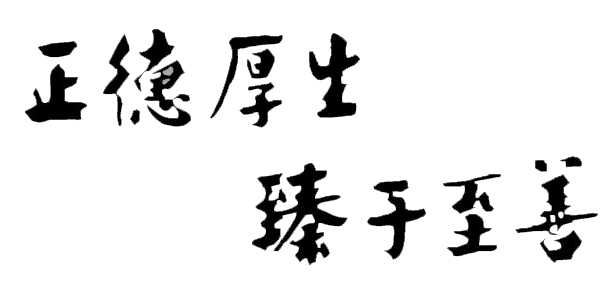 正德厚生
臻于至善